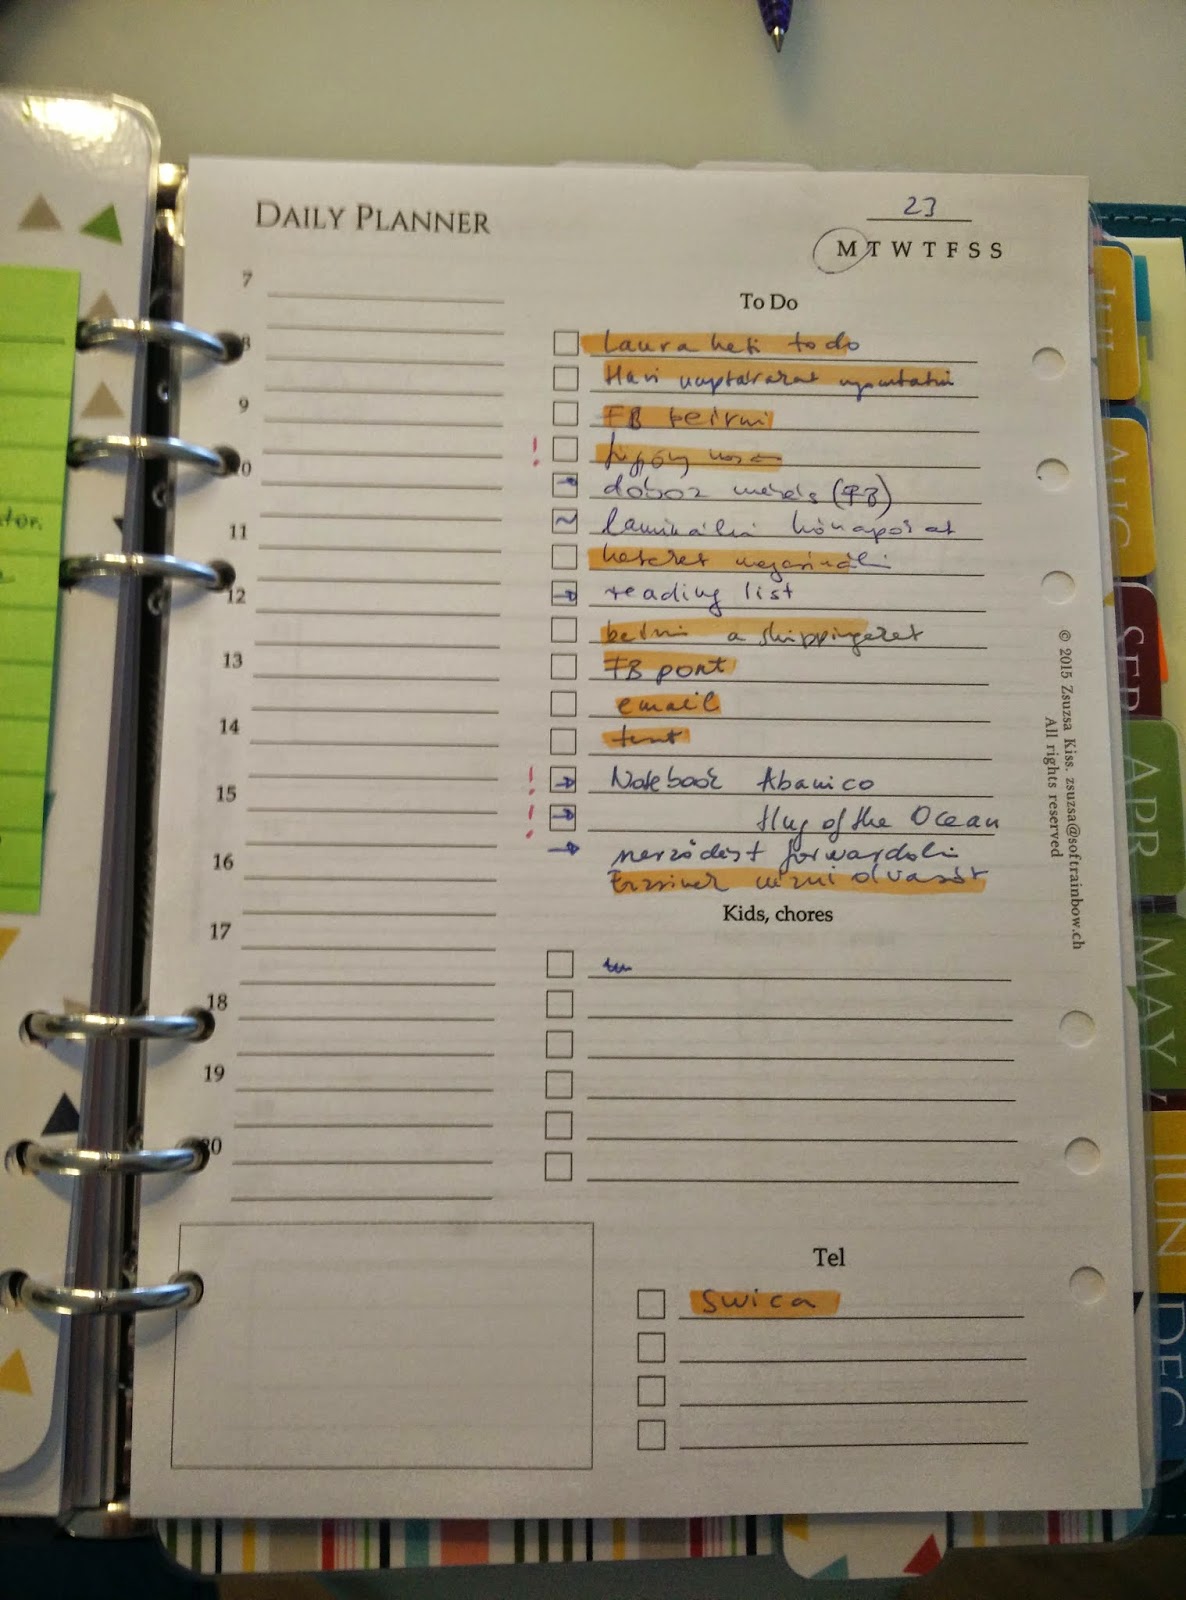 DAILY PLANNER
23
M T W T F S S
7
8
9
10
11
12
13
14
15
16
17
18
19
20
To Do
Laura heti to do
Havi naptárakat nyomtatni
FB beírni
!
doboz mérés (FB)
laminálni hónapokat
heteket megcsinálni
reading list
beírni a shippingeket
FB pont
email
! Notebook Abanico
! Hug of the Ocean
forwardolni
olvasót
Kids, chores
Tel
Swica
© 2015 Zsuzsa Kiss. zsuzsa@softrainbow.ch
All rights reserved
JUL
AUG
SEP
APR
MAY
JUN
DEC